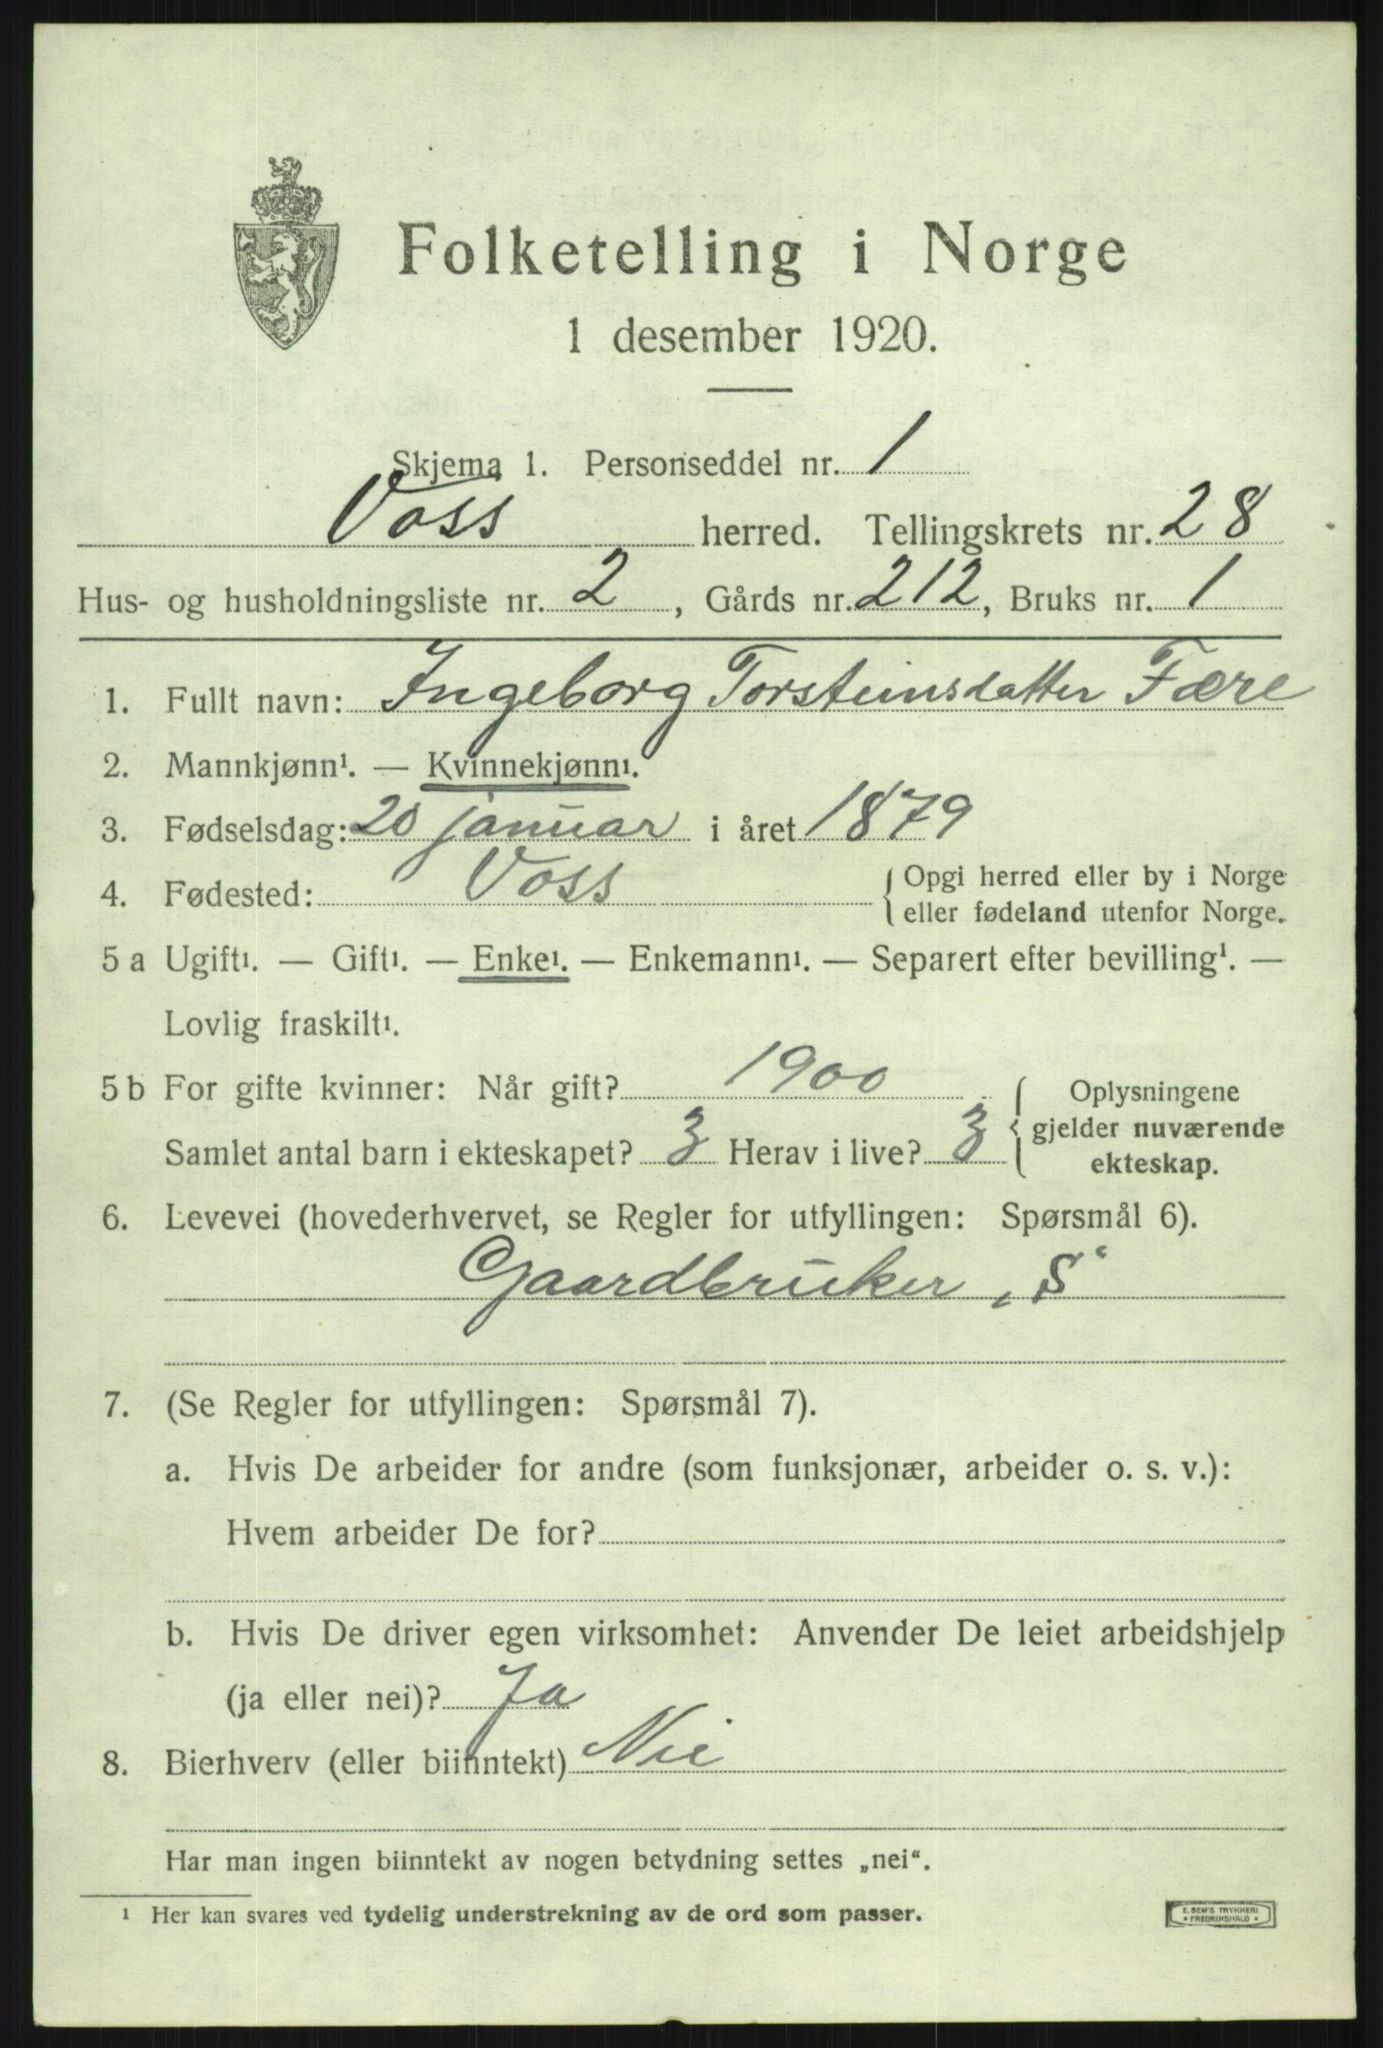 Folketelling i Norge
1 desember 1920.
Skjema 1. Personseddel nr. 1
Voss herred. Tellingskrets nr. 28
Hus- og husholdningsliste nr. 2, Gårds nr. 212, Bruks nr. 1
1. Fullt navn: Ingeborg Torsteinsdatter Fære
2. Mannkjønn¹. — Kvinnekjønn¹.
3. Fødselsdag: 20 januar i året 1879
4. Fødested: Voss { Opgi herred eller by i Norge
eller fødeland utenfor Norge.
5 a Ugift¹. — Gift¹. — Enke¹. — Enkemann¹. — Separert efter bevilling¹. —
Lovlig fraskilt¹.
5 b For gifte kvinner: Når gift? 1900
Samlet antal barn i ekteskapet? 3 Herav i live? 3
{ Oplysningene
gjelder nuværende
ekteskap.
6. Levevei (hovederhvervet, se Regler for utfyllingen: Spørsmål 6).
Gaardbruker „S"
7. (Se Regler for utfyllingen: Spørsmål 7).
a. Hvis De arbeider for andre (som funksjonær, arbeider o. s. v.):
Hvem arbeider De for?
b. Hvis De driver egen virksomhet: Anvender De leiet arbeidshjelp
(ja eller nei)? Ja
8. Bierhverv (eller biinntekt) Nei
Har man ingen biinntekt av nogen betydning settes „nei".
¹ Her kan svares ved tydelig understrekning av de ord som passer.
E. SEM'S TRYKKERI
* FREDRIKSHALD *